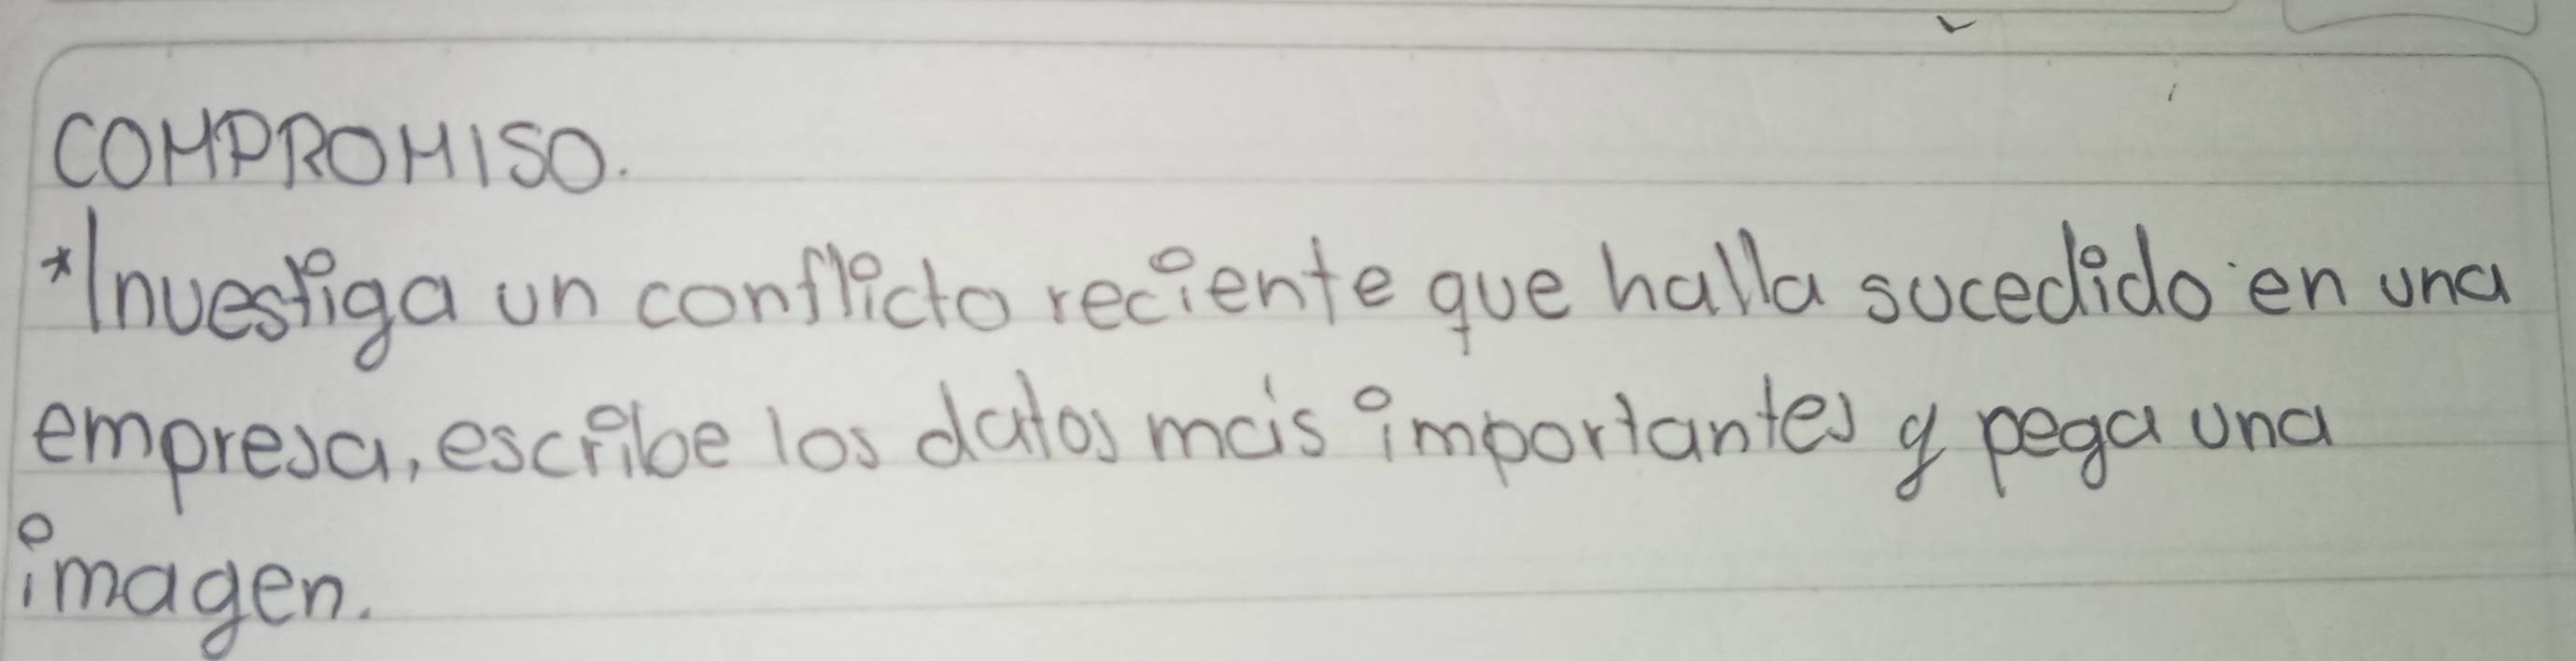 COMPROMISO.
*Investiga un conflicto reciente que halla sucedido en una
empresa, escribe los datos más importantes y pega una
imagen.